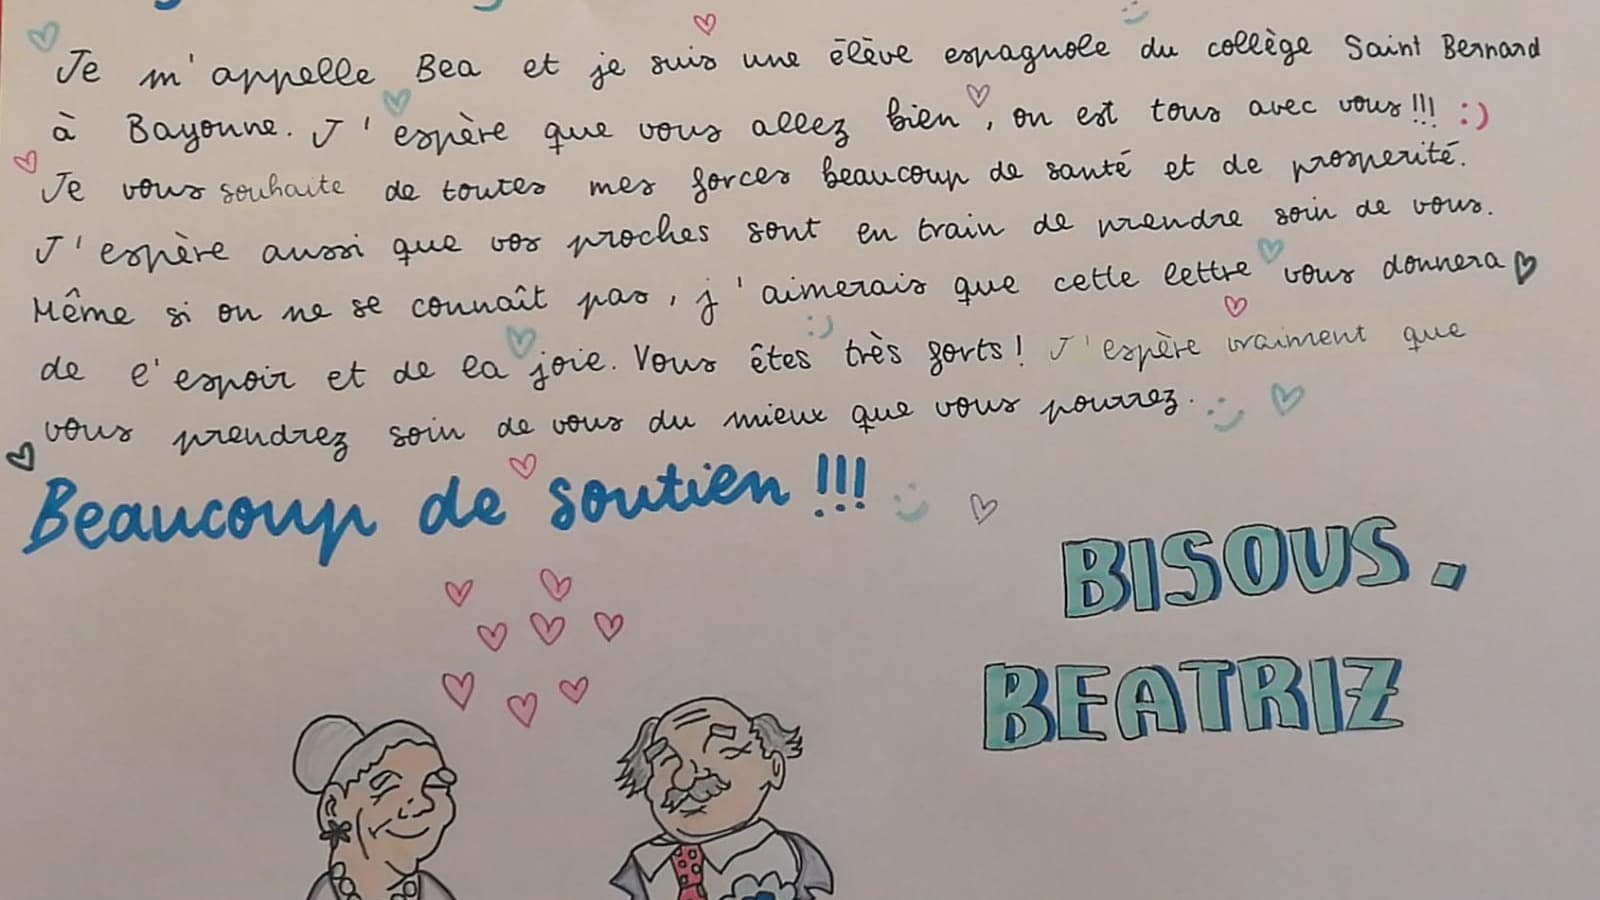 Je m'appelle Bea et je suis une élève espagnole du collège Saint Bernard
à Bayonne. J'espère que vous allez bien, on est tous avec vous!!! :)
Je vous souhaite de toutes mes forces beaucoup de santé et de prosperité.
J'espère aussi que vos proches sont en train de prendre soin de vous.
Même si on ne se connaît pas, j'aimerais que cette lettre vous donnera
de l'espoir et de la joie. Vous êtes très forts! J'espère vraiment que
vous prendrez soin de vous du mieux que vous pourrez.
Beaucoup de soutien!!!
BISOUS.
BEATRIZ